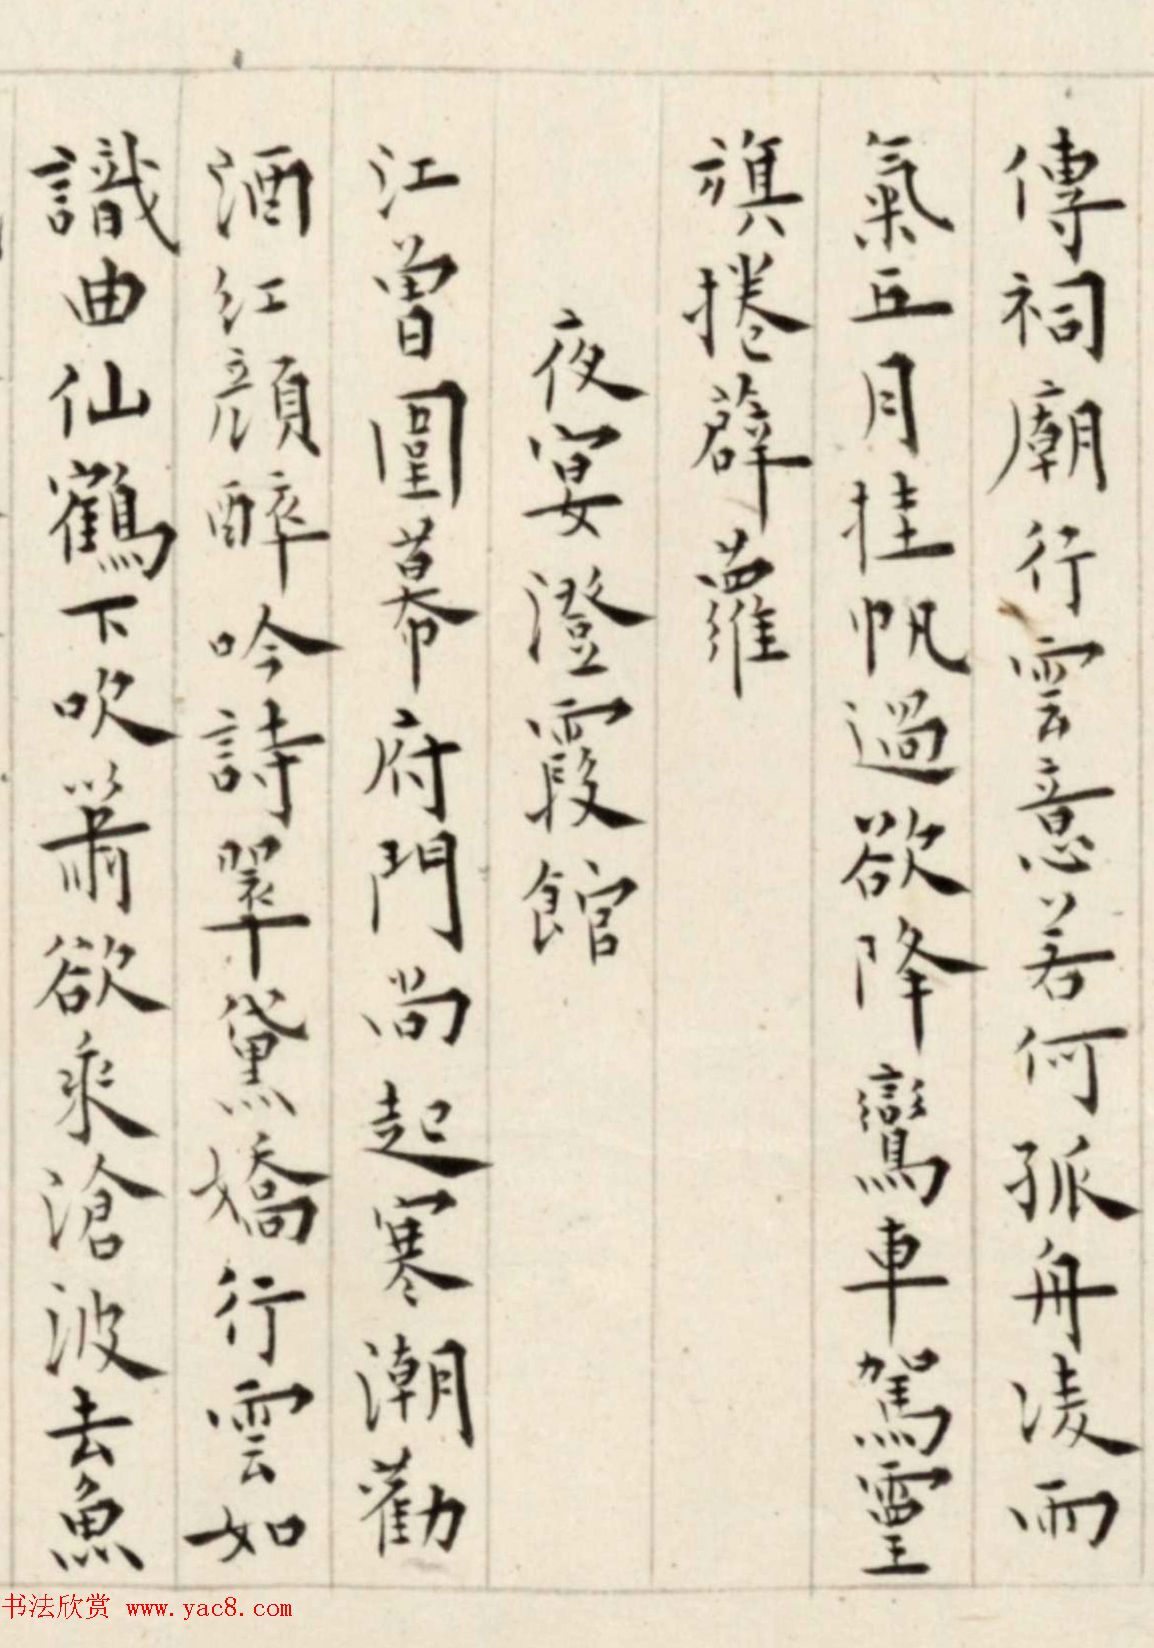 傳祠廟行雲意若何孤舟淩雨
氣五月挂帆過欲降鸞車駕靈
旗捲薜蘿
夜宴澄霞館
江曾圍幕府門尚起寒潮勸
酒紅顏醉吟詩翠黛嬌行雲如
識曲仙鶴下吹簫欲乘滄波去魚
书法欣赏 www.yac8.com